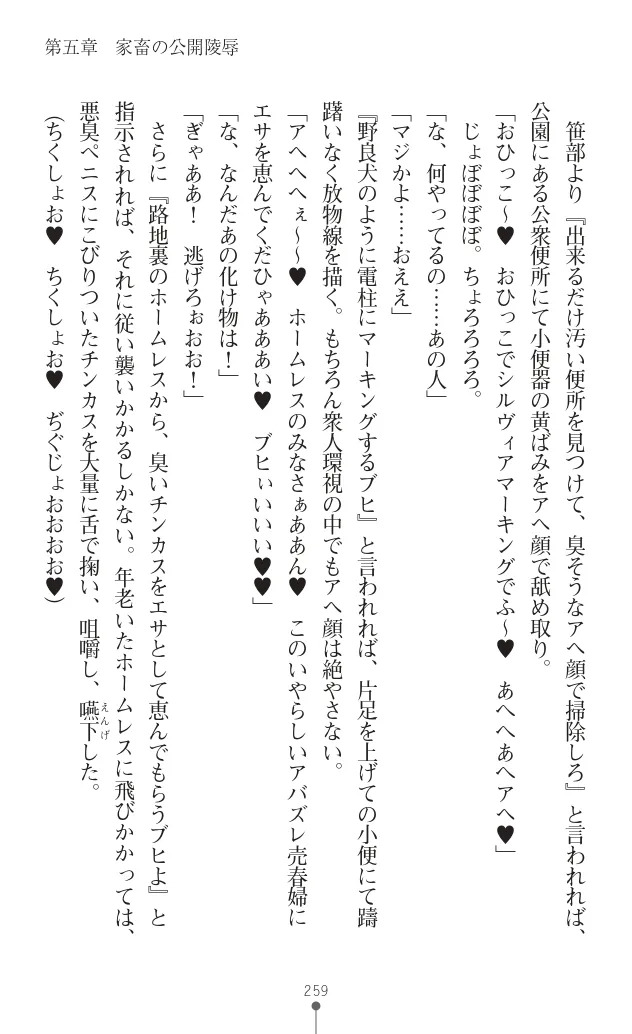 第五章　家畜の公開陵辱
　笹部より『出来るだけ汚い便所を見つけて、臭そうなアヘ顔で掃除しろ』と言われれば、
公園にある公衆便所にて小便器の黄ばみをアヘ顔で舐め取り。
「おひっこ～♥　おひっこでシルヴィアマーキングでふ～♥　あへへあへアヘ♥」
　じょぼぼぼぼ。ちょろろろろ。
「な、何やってるの……あの人」
「マジかよ……おええ」
『野良犬のように電柱にマーキングするブヒ』と言われれば、片足を上げての小便にて躊
躇いなく放物線を描く。もちろん衆人環視の中でもアヘ顔は絶やさない。
「アへへへぇ～～♥　ホームレスのみなさぁああん♥　このいやらしいアバズレ売春婦に
エサを恵んでくだひゃあああい♥　ブヒぃいいい♥♥」
「な、なんだあの化け物は！」
「ぎゃああ！　逃げろぉおお！」
　さらに『路地裏のホームレスから、臭いチンカスをエサとして恵んでもらうブヒよ』と
指示されれば、それに従い襲いかかるしかない。年老いたホームレスに飛びかかっては、
悪臭ペニスにこびりついたチンカスを大量に舌で掬い、咀嚼し、嚥下した。
えんげ
（ちくしょお♥　ちくしょお♥　ぢぐじょおおおお♥）
259